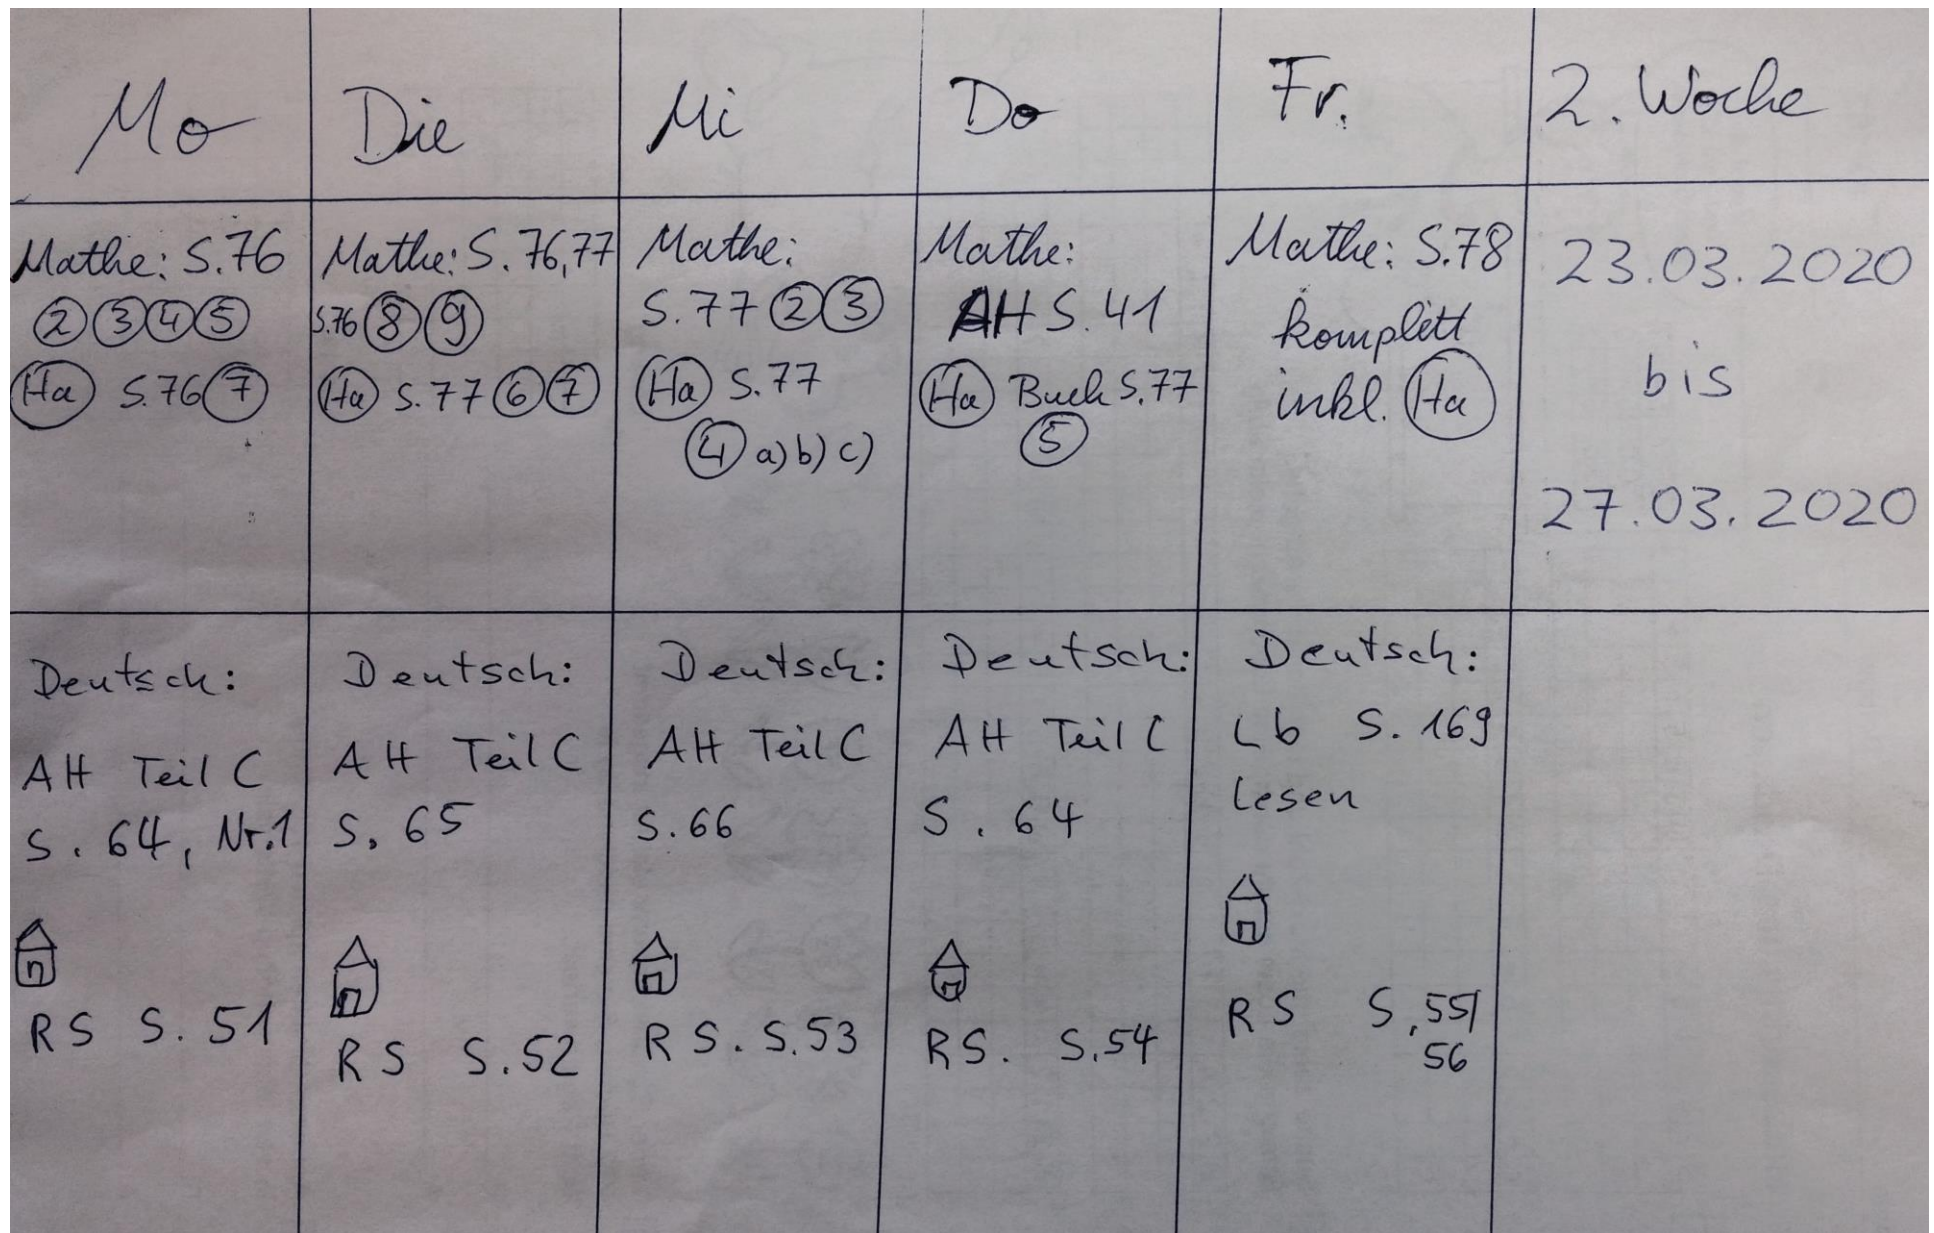 Mo
Die
Mi
Do
Fr.
2. Woche
Mathe: S.76
2 3 4 5
Ha S.76 7
Mathe: S. 76,77
S.76 8 9
Ha S.77 6 7
Mathe:
S.77 2 3
Ha S.77
4 a) b) c)
Mathe:
AH S. 41
Ha Buch S.77
5
Mathe: S.78
komplett
inkl. Ha
23.03.2020
bis
27.03.2020
Deutsch:
AH Teil C
S. 64, Nr.1
RS S. 51
Deutsch:
AH Teil C
S. 65
RS S.52
Deutsch:
AH Teil C
S.66
RS. S.53
Deutsch:
AH Teil C
S. 64
RS. S.54
Deutsch:
Lb S. 169
lesen
RS S,55/
56